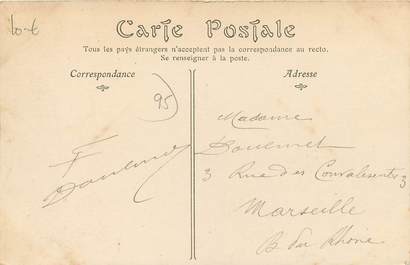 10-€
Carte Postale
Tous les pays étrangers n'acceptent pas la correspondance au recto.
Se renseigner à la poste.
Correspondance
Adresse
95
F
Madame
3 Rue des Convalescents 3
Marseille
B. du Rhône